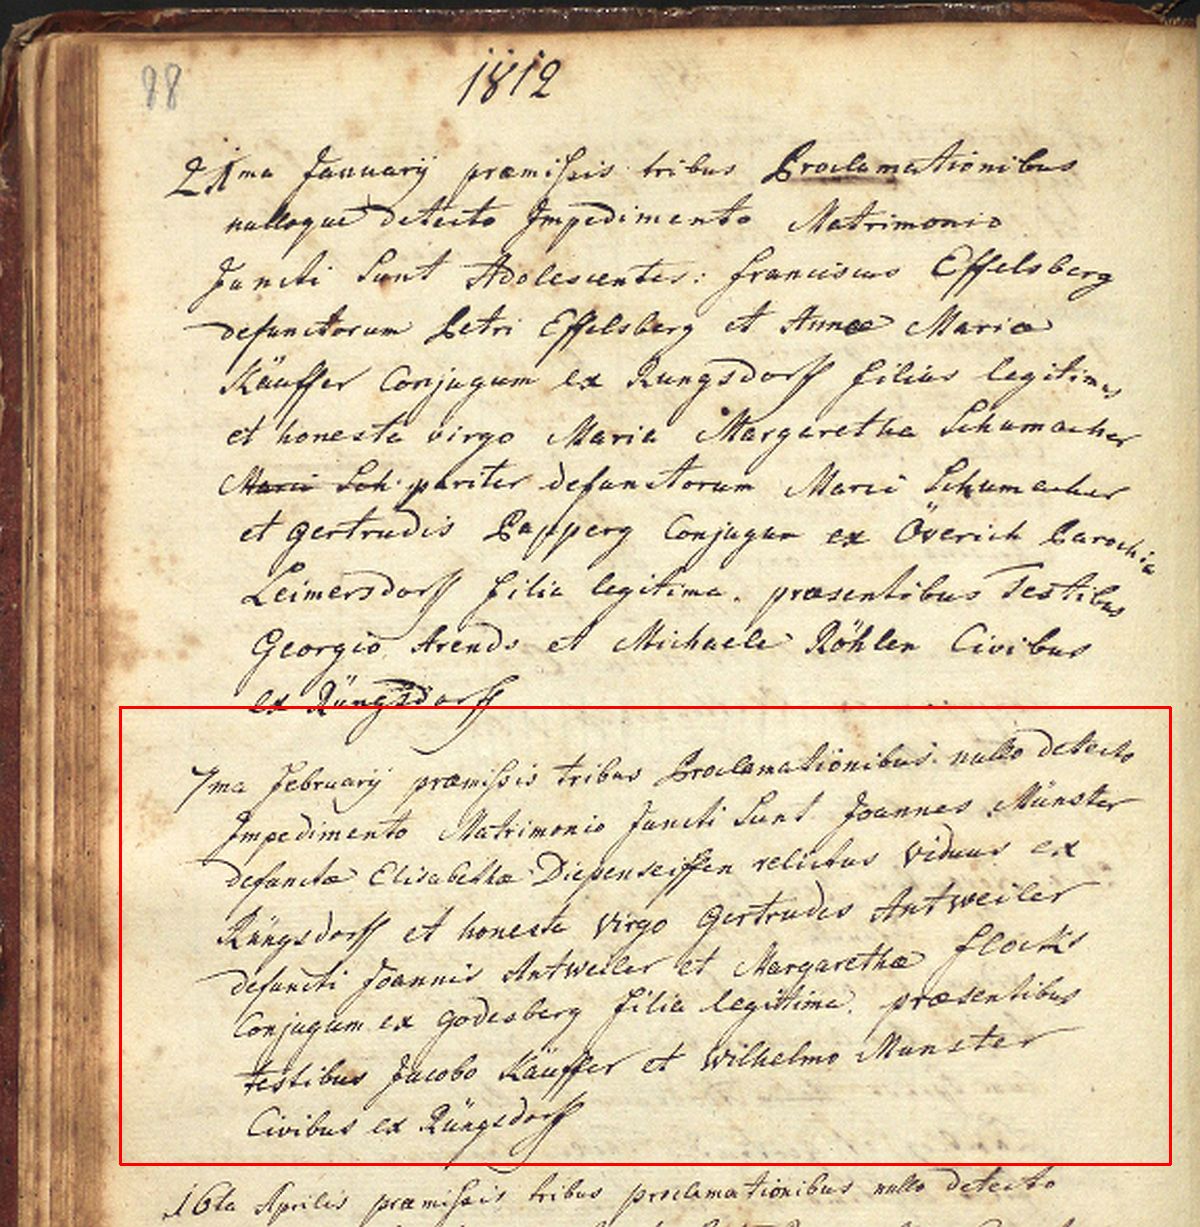 88
1812
21ma Januarÿ præmissis tribus Proclamationibus
nulloque detecto Impedimento Matrimonio
Juncti Sunt Adolescentes: franciscus Effelsberg
defunctorum Petri Effelsberg et Annæ Mariæ
Käuffer Conjugum ex Rungsdorff filius legitimus
et honesta virgo Maria Margaretha Schumacher
Marii Sch. pariter defunctorum Marii Schumacher
et Gertrudis Papperg Conjugum ex Överich Parochia
Leimersdorff filia legitima. præsentibus Testibus
Georgio Arends et Michaele Röhlen Civibus
ex Rüngsdorff
7ma februarÿ præmissis tribus Proclamationibus nullo detecto
Impedimento Matrimonio Juncti Sunt Joannes Münster
defunctæ Elisabethæ Diepenseiffen relictus Viduus ex
Rüngsdorff et honesta Virgo Gertrudis Antweiler
defuncti Joannis Antweiler et Margarethæ flocks
Conjugum ex Godesberg filia legittima. præsentibus
testibus Jacobo Käuffer et Wilhelmo Munster
Civibus ex Rüngsdorff
16ta Aprilis præmissis tribus proclamationibus nullo detecto